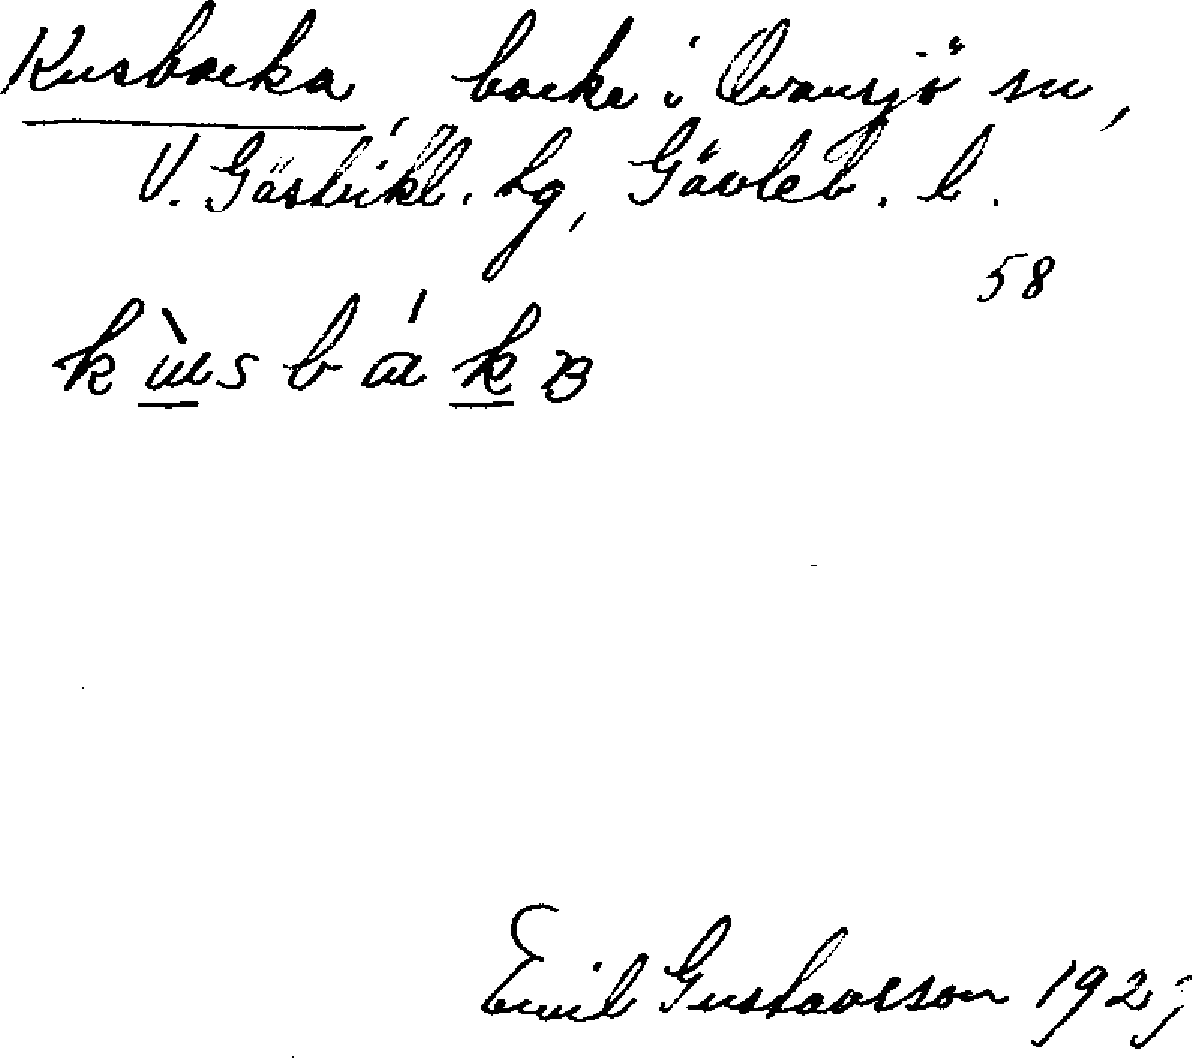 Kusbacka, backe i Ovansjö sn,
V. Gästrikl. hg, Gävleb. l.
58
kùsbákɐ
Emil Gustavsson 1923